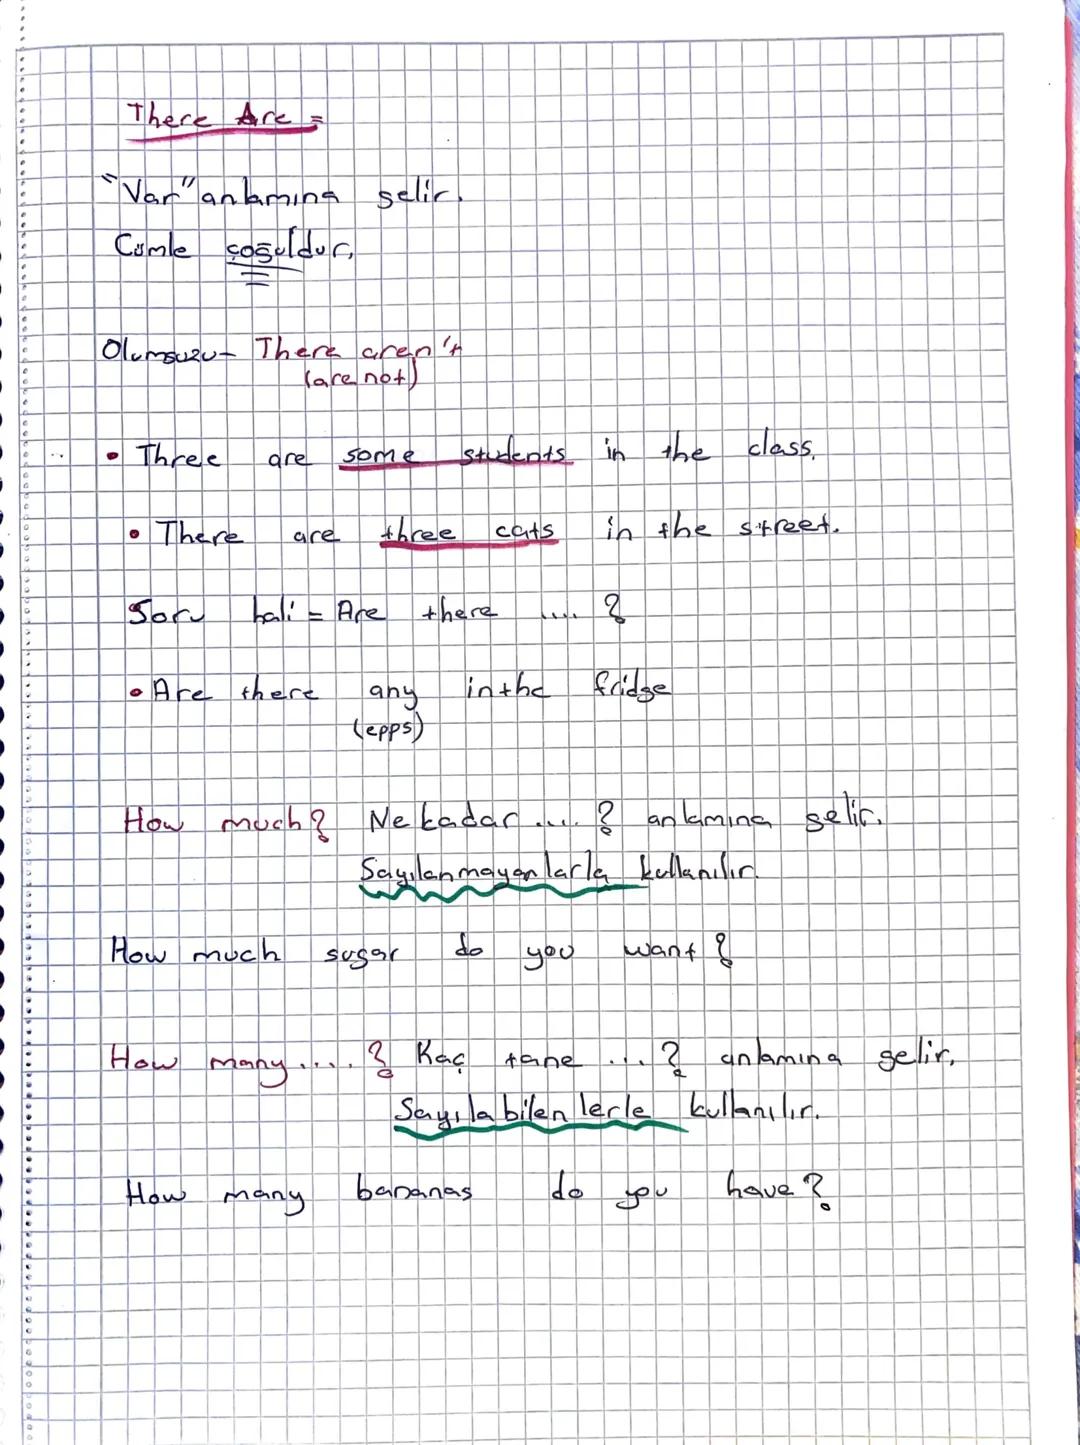 There Are =
"Var" anlamına gelir.
Cümle çoğuldur.
Olumsuzu- There aren't
(are not)
• Three are some students in the class.
• There are three cats in the street.
Soru hali = Are there .... ?
• Are there any in the fridge
(epps)
How much? Ne kadar .... ? anlamına gelir.
Sayılanmayanlarla kullanılır.
How much sugar do you want?
How many....? Kaç tane ...? anlamına gelir.
Sayılabilenlerle kullanılır.
How many bananas do you have?